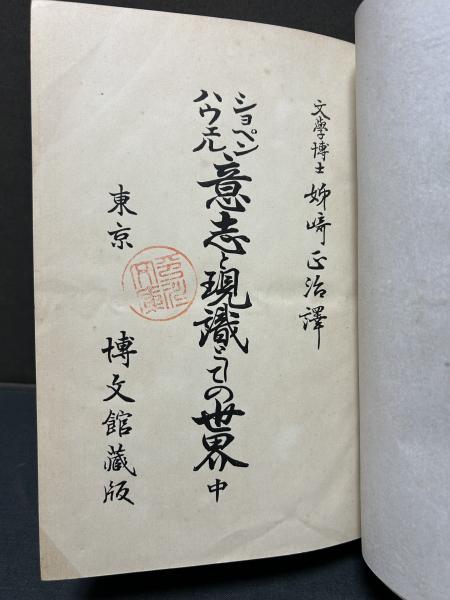 文學博士 姉崎正治譯
ショペンハウエル 意志と現識としての世界 中
東京 博文館藏版